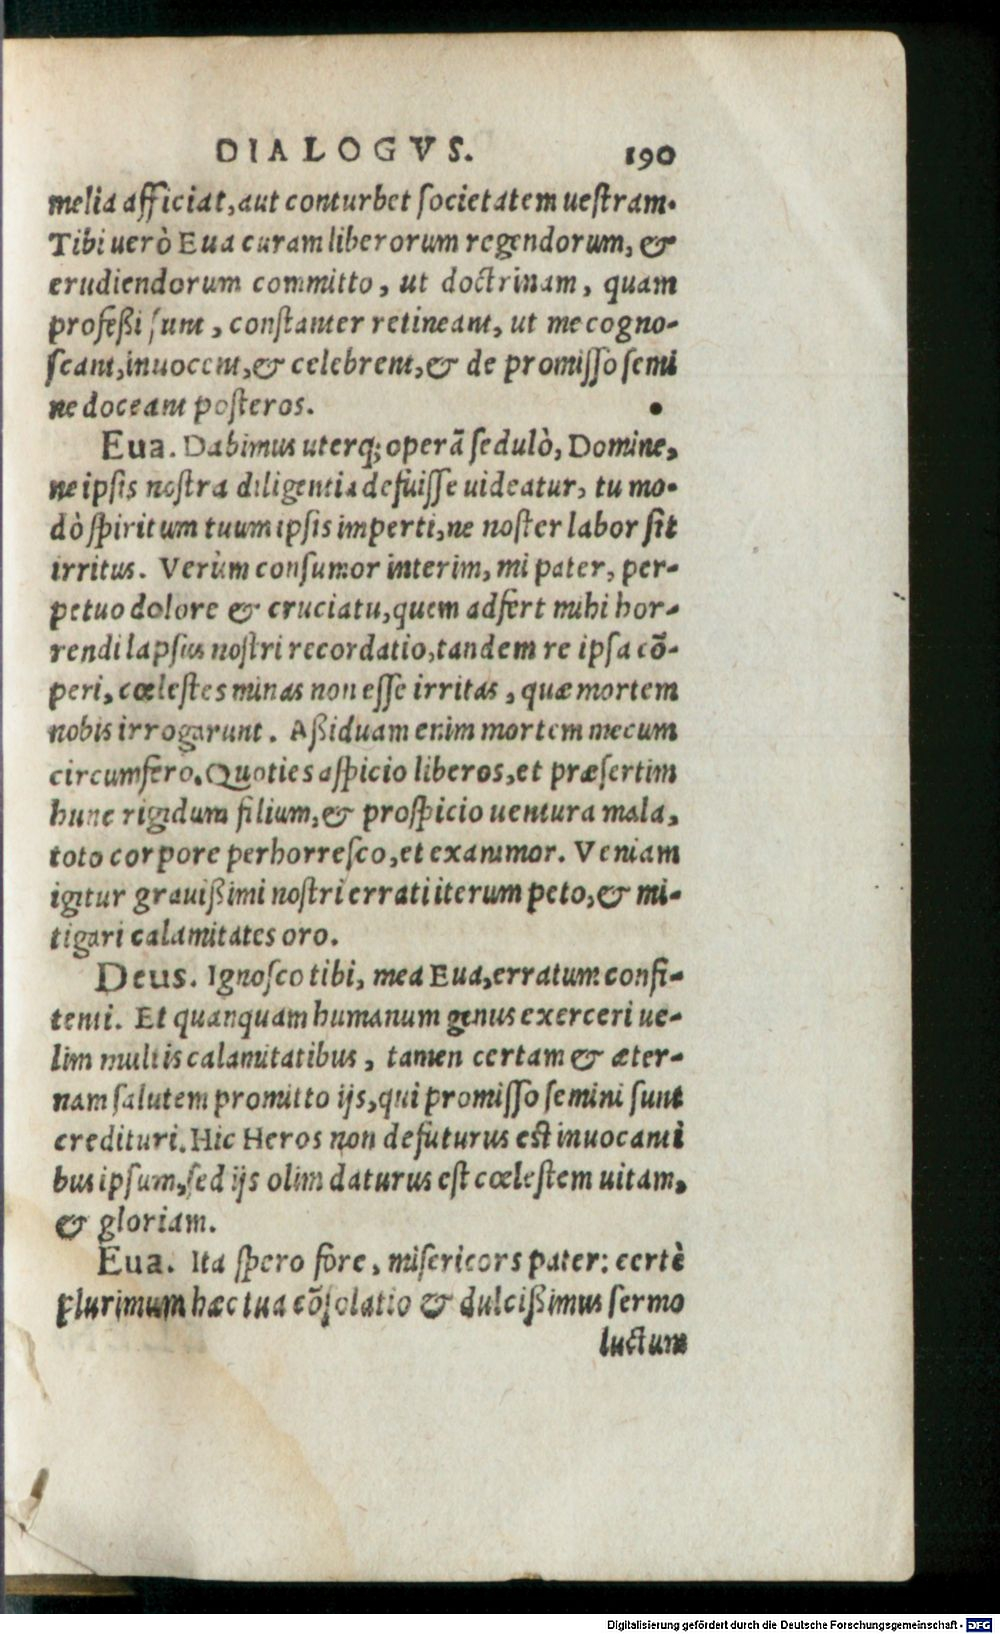 DIALOGVS. 190
melia afficiat, aut conturbet ſocietatem ueſtram.
Tibi uerò Eua curam liberorum regendorum, &
erudiendorum committo, ut doctrinam, quam
profeßi ſunt, conſtanter retineant, ut me cogno-
ſcant, inuocent, & celebrent, & de promiſſo ſemi
ne doceant poſteros.
Eua. Dabimus uterq; operã ſedulò, Domine,
ne ipſis noſtra diligentia defuiſſe uideatur, tu mo-
dò ſpiritum tuum ipſis imperti, ne noſter labor ſit
irritus. Verùm conſumor interim, mi pater, per-
petuo dolore & cruciatu, quem adfert mihi hor-
rendi lapſus noſtri recordatio, tandem re ipſa cõ-
peri, cœleſtes minas non eſſe irritas, quæ mortem
nobis irrogarunt. Aßiduam enim mortem mecum
circumfero. Quoties aſpicio liberos, et præſertim
hunc rigidum filium, & proſpicio uentura mala,
toto corpore perhorreſco, et exanimor. Veniam
igitur grauißimi noſtri errati iterum peto, & mi-
tigari calamitates oro.
Deus. Ignoſco tibi, mea Eua, erratum confi-
tenti. Et quanquam humanum genus exerceri ue-
lim multis calamitatibus, tamen certam & æter-
nam ſalutem promitto ijs, qui promiſſo ſemini ſunt
credituri. Hic Heros non defuturus eſt inuocanti
bus ipſum, ſed ijs olim daturus eſt cœleſtem uitam,
& gloriam.
Eua. Ita ſpero fore, miſericors pater: certè
plurimum hæc tua cõſolatio & dulcißimus ſermo
luctum
Digitalisierung gefördert durch die Deutsche Forschungsgemeinschaft - DFG